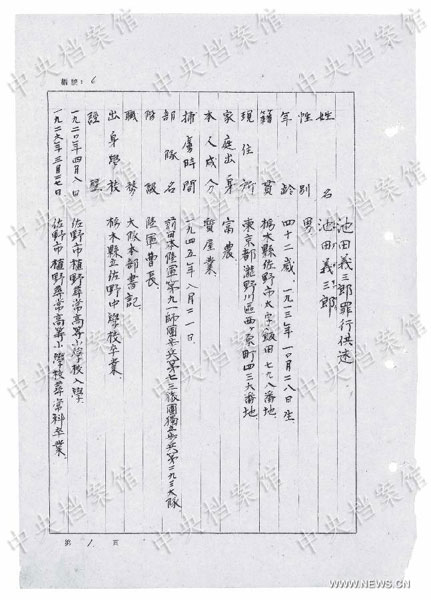 編號：6
池田義三郎罪行供述
姓名 池田義三郎
性別 男
年齡 四十二歲、一九一三年一〇月二八日生
籍貫 栃木縣佐野市大字飯田七九八番地
現住所 東京都瀧野川區西ヶ原町四三六番地
家庭出身 富農
本人成分 質屋業
捕虜時間 一九四五年八月二一日
部隊名 前日本陸軍第九一師團步兵第七三旅團獨立步兵第二九三大隊
階級 陸軍曹長
職務 大隊本部書記
出身學校 栃木縣立佐野中學校卒業、
經歷
一九二〇年四月八日 佐野市植野尋常高等小學校入學、
一九二六年三月二七日 佐野市植野尋常高等小學校尋常科卒業、
第 1 頁
中央档案馆
WWW.NEWS.CN